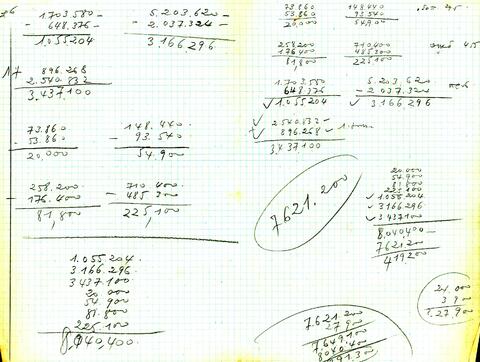 1.703.580 - 5.203.620 -
- 648.376 - - 2.037.324 -
1.055204 3.166.296
17 896.268
2.540.832
3.437.100
73.860 148.440
- 53.860 - 93.540
20.000 54.900
258.200 710.400
- 176.400 - 485.300
81.800 225.100
1.055.204
3.166.296
3.437.100
20.000
54.900
81.800
225.100
8.040.400
73.860 148.440
53.860 93.540
20.000 54.900
258.200 710.400
176.400 485.300
81.800 225.100
1.703.580 5.203.620
648.376 - 2.037.324
✓ 1.055204 ✓ 3166296
✓ 2.540.832 -
✓ 896.268
3.437.100
7621.200
20.000
54.900
81.800
225.100
✓ 1.055204
✓ 3166296
✓ 3437100
8.040.400
7621.200
419200
24.000
3.900
27.900
7.621.200
27.900
7.649.100
8040.400